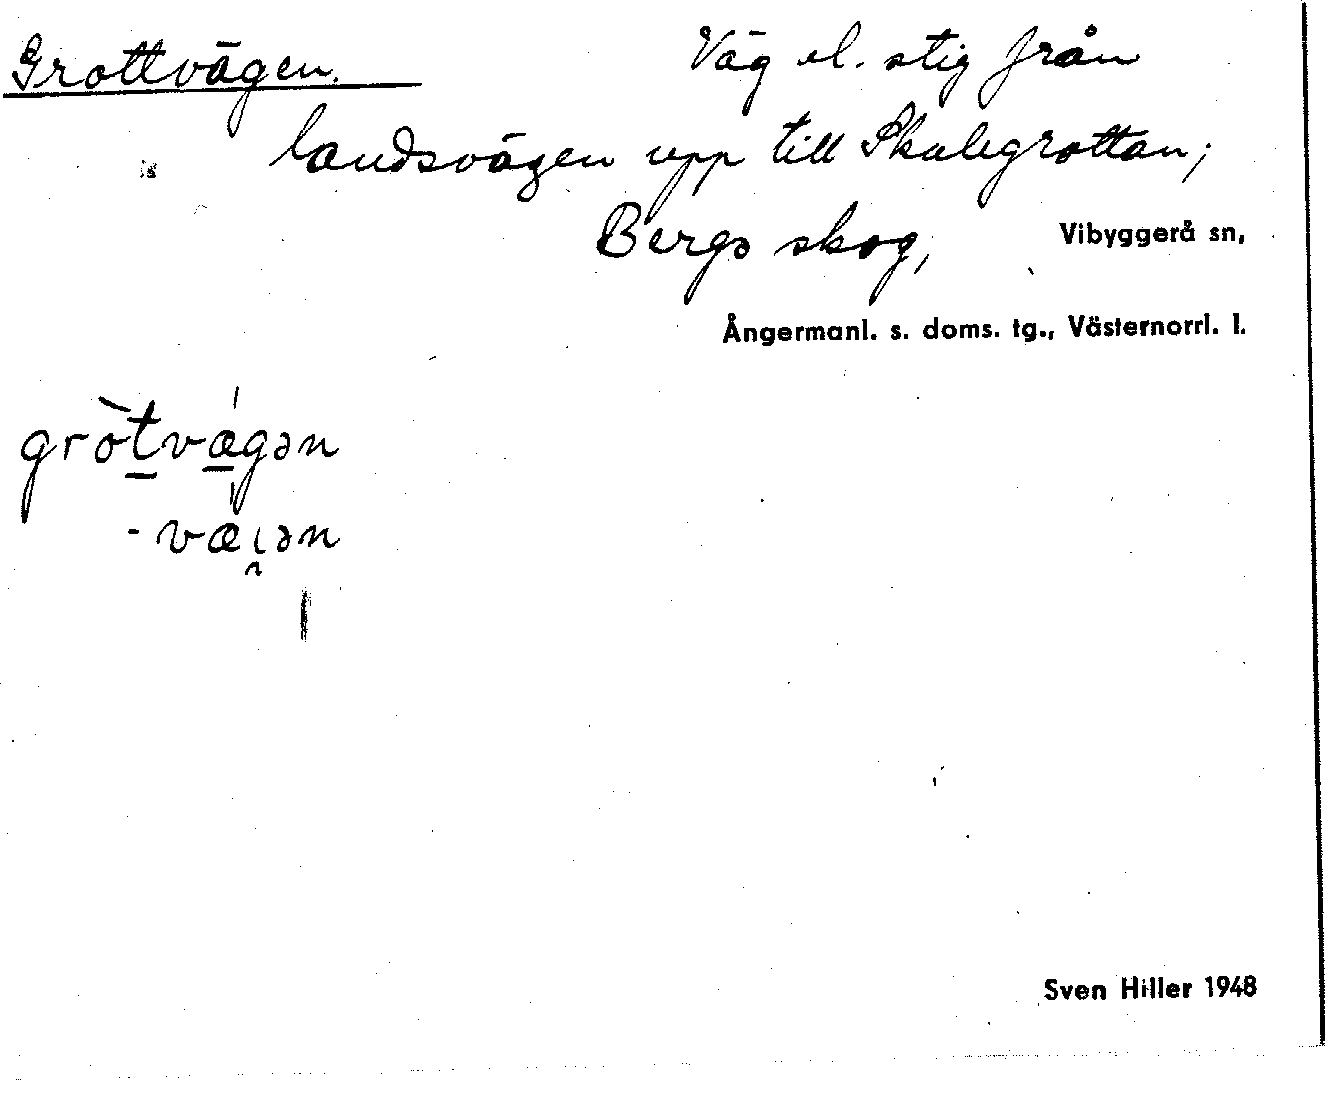 Grottvägen. Väg el. stig från
landsvägen upp till Skulegrottan;
Bergs skog, Vibyggerå sn,
Ångermanl. s. doms. tg., Västernorrl. l.
grò̀t̠vǽ̠gən
-væi̯ən
Sven Hiller 1948